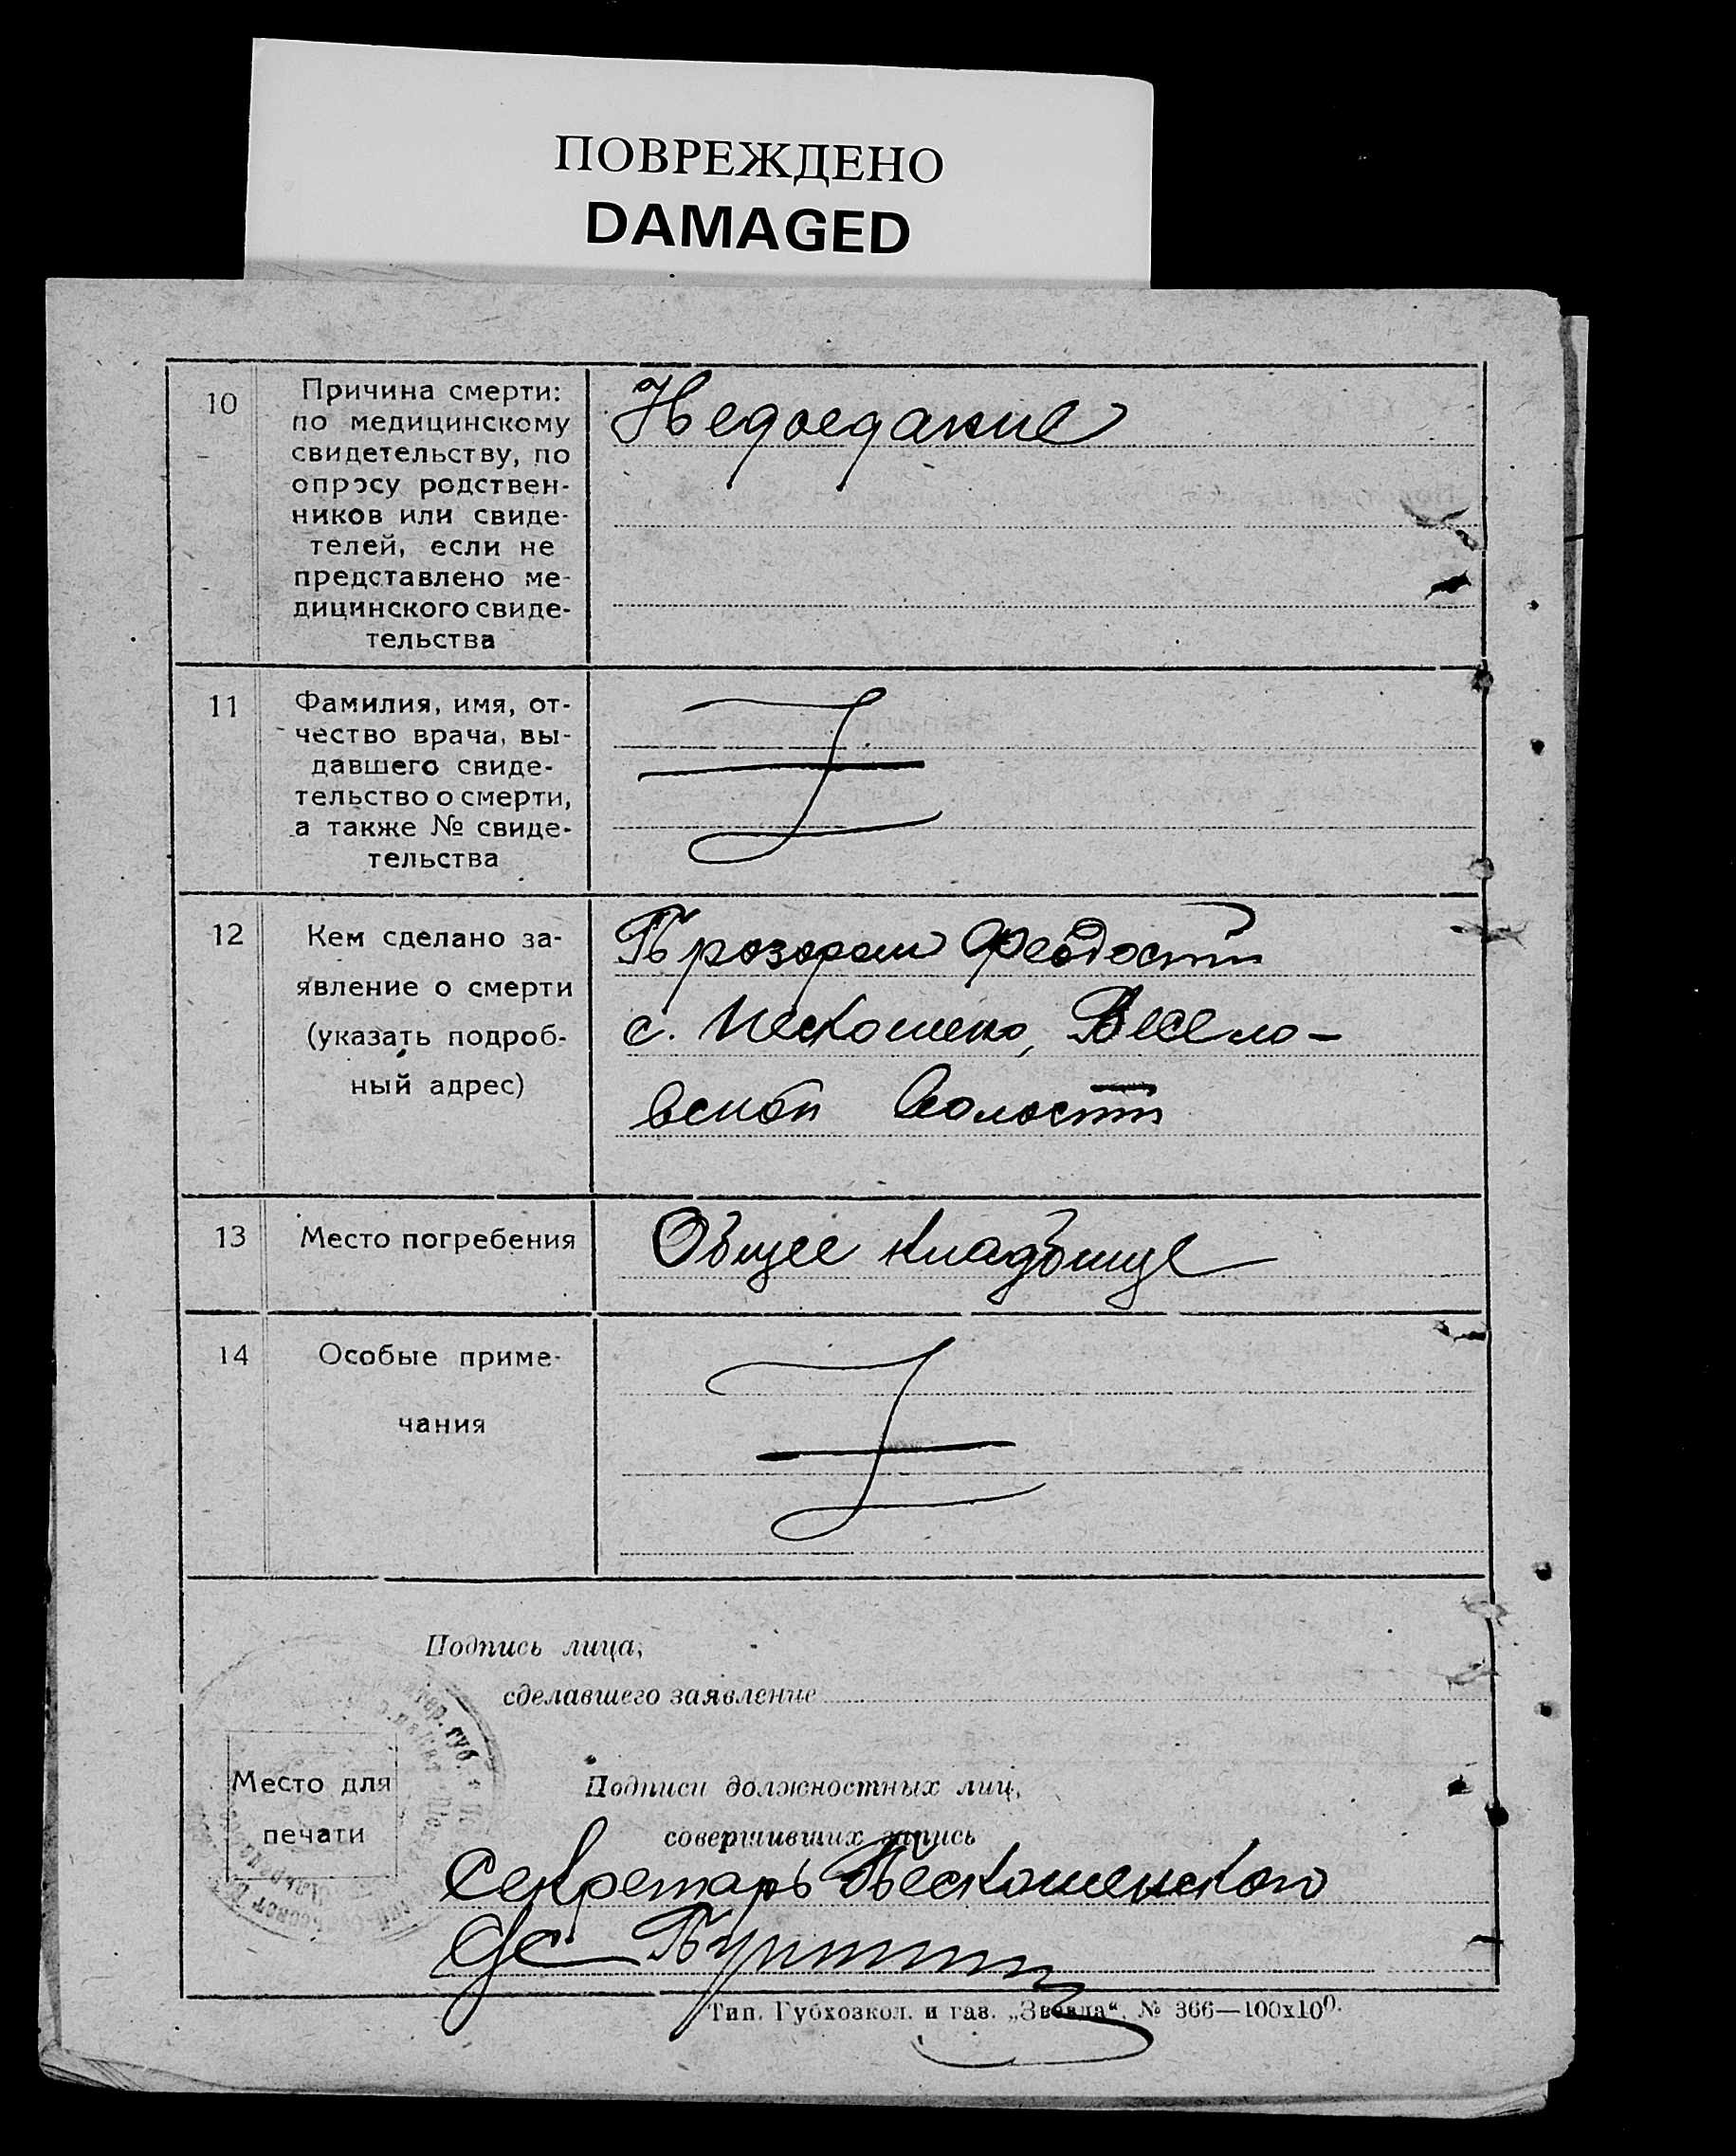 ПОВРЕЖДЕНО
DAMAGED
10
Причина смерти:
по медицинскому
свидетельству, по
опросу родствен-
ников или свиде-
телей, если не
представлено ме-
дицинского свиде-
тельства
Недоедание
11
Фамилия, имя, от-
чество врача, вы-
давшего свиде-
тельство о смерти,
а также № свиде-
тельства
12
Кем сделано за-
явление о смерти
(указать подроб-
ный адрес)
Феодосий
с. Весело-
вской волости
13
Место погребения
Общее кладбище
14
Особые приме-
чания
Подпись лица,
сделавшего заявление
Место для
печати
губ.
Подписи должностных лиц,
совершивших запись
Секретарь Пескошенского
Тип. Губхозкол. и газ. „Звезда“. № 366—100х100.